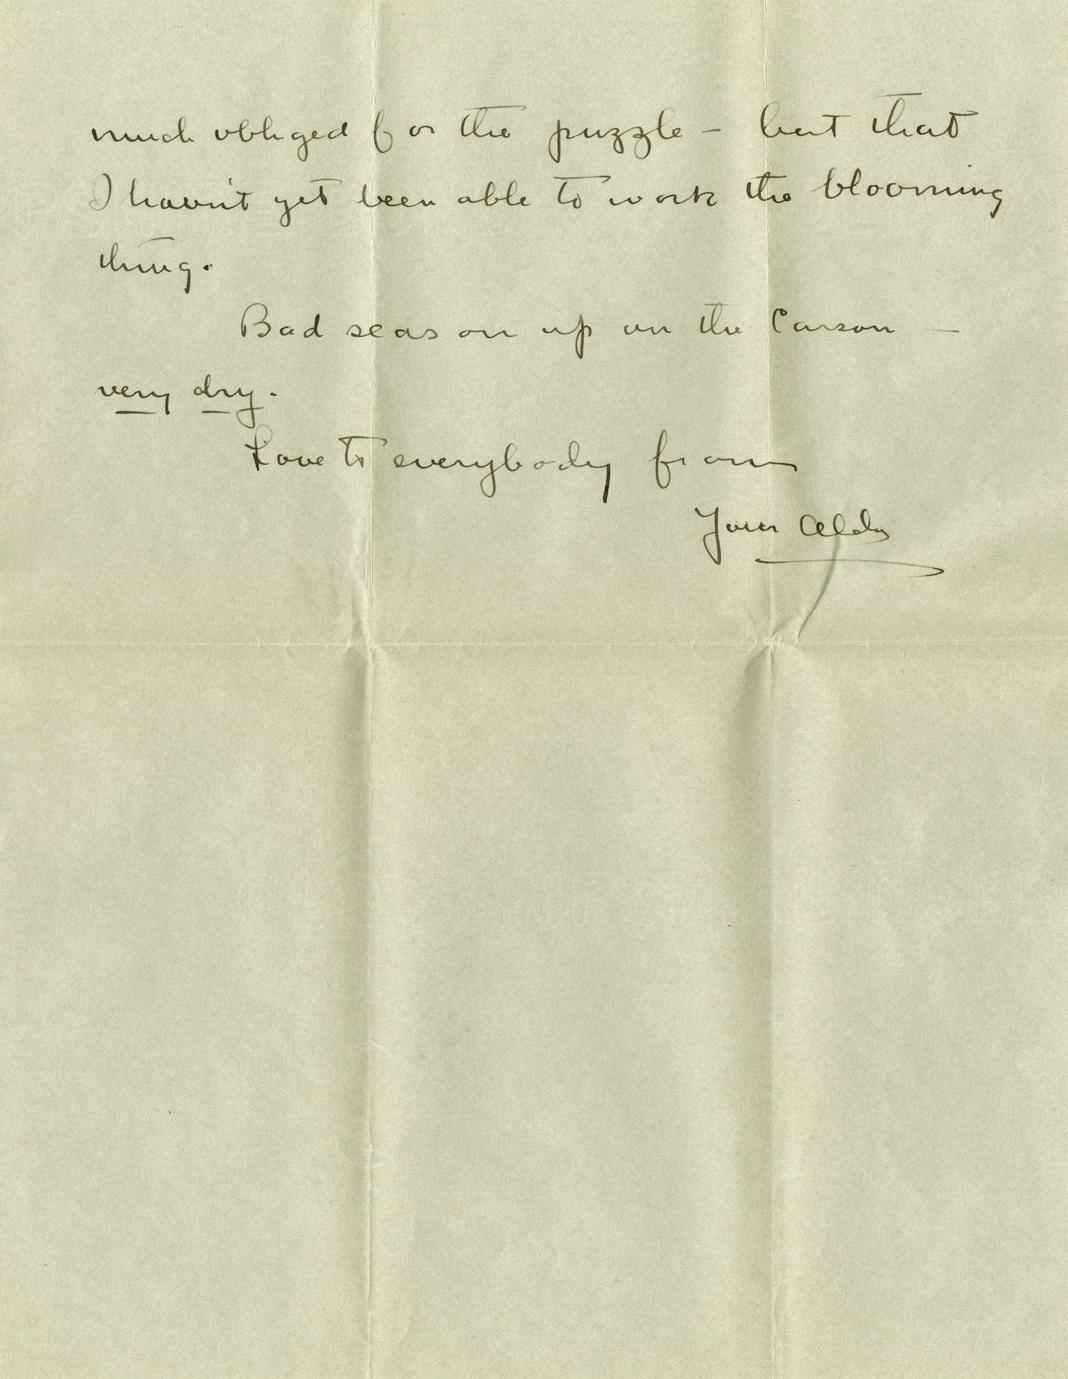 much obliged for the puzzle - but that
I havn't yet been able to work the blooming
thing.
Bad season up on the Carson -
very dry.
Love to everybody from
Your Aldo